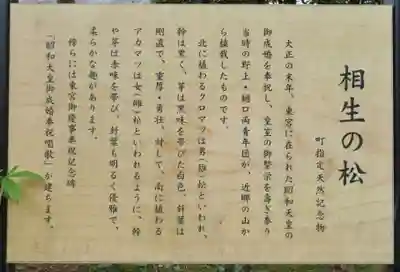 相生の松
町指定天然記念物
大正の末年、東宮に在られた昭和天皇の
御成婚を奉祝し、皇室の御繁栄を寿ぎ奉り
当時の野上・樋口両青年団が、近郷の山か
ら植栽したものです。
北に植わるクロマツは男(雄)松といわれ、
幹は黒く、芽は黒味を帯びた白色、針葉は
剛直で、重厚・勇壮。対して、南に植わる
アカマツは女(雌)松といわれるように、幹
や芽は赤味を帯び、針葉も明るく優雅で、
柔らかな趣があります。
傍らには東宮御慶事奉祝記念碑
「昭和天皇御成婚奉祝唱歌」が建ちます。